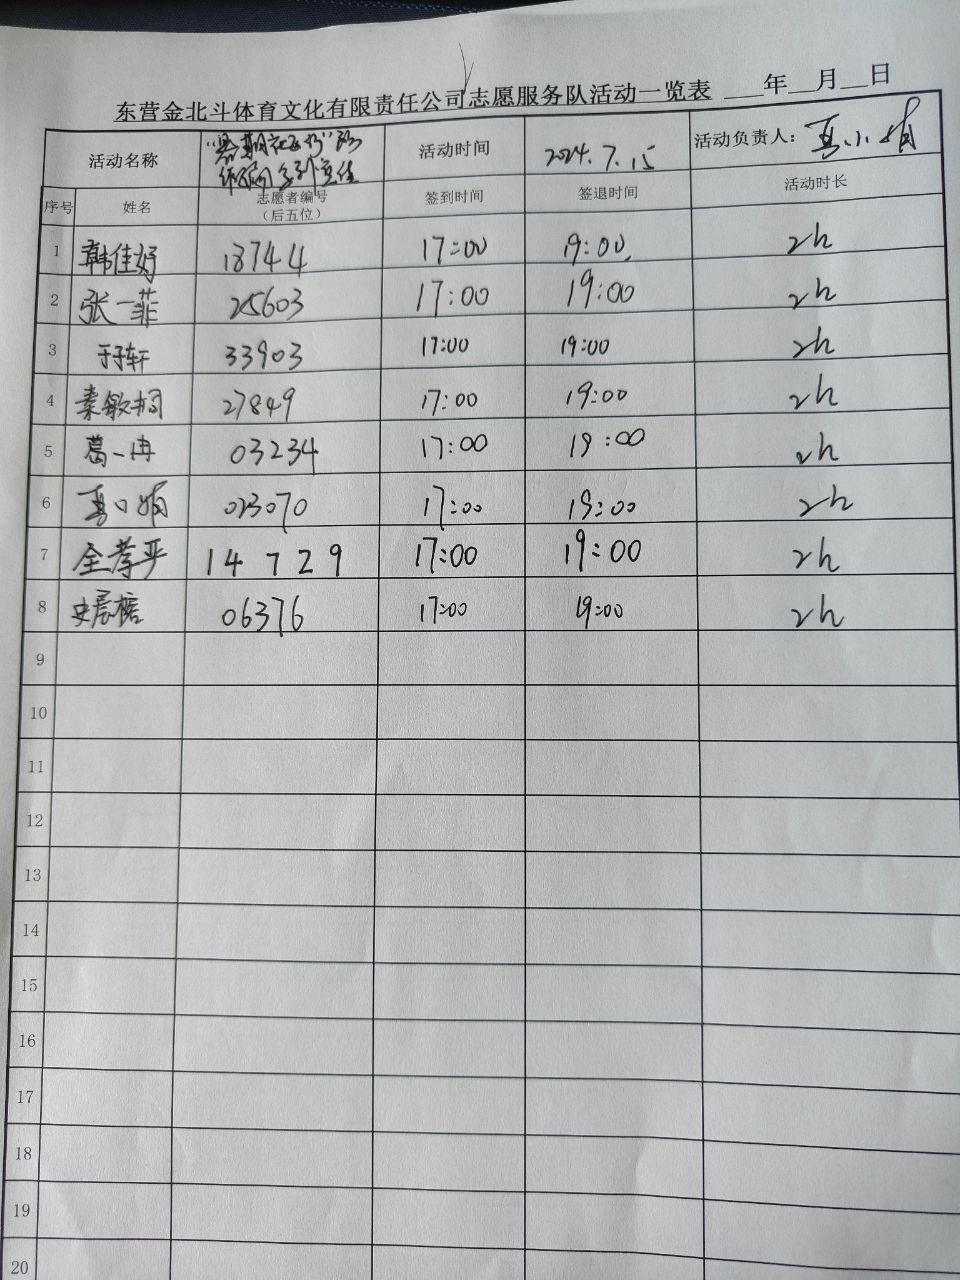 东营金北斗体育文化有限责任公司志愿服务队活动一览表 ___年__月__日
活动名称 活动时间 2024.7.15 活动负责人：
序号 姓名 志愿者编号（后五位） 签到时间 签退时间 活动时长
1 韩佳好 18744 17:00 19:00 2h
2 张一菲 25603 17:00 19:00 2h
3 于子轩 33903 17:00 19:00 2h
4 秦敏 27849 17:00 19:00 2h
5 葛一冉 03234 17:00 19:00 2h
6 17:00 19:00 2h
7 全孝严 14729 17:00 19:00 2h
8 史宸榕 06376 17:00 19:00 2h
9
10
11
12
13
14
15
16
17
18
19
20